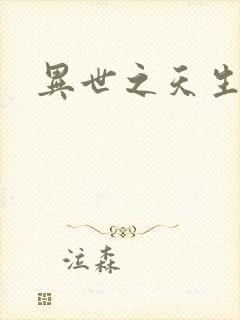 異世之天生
泣森